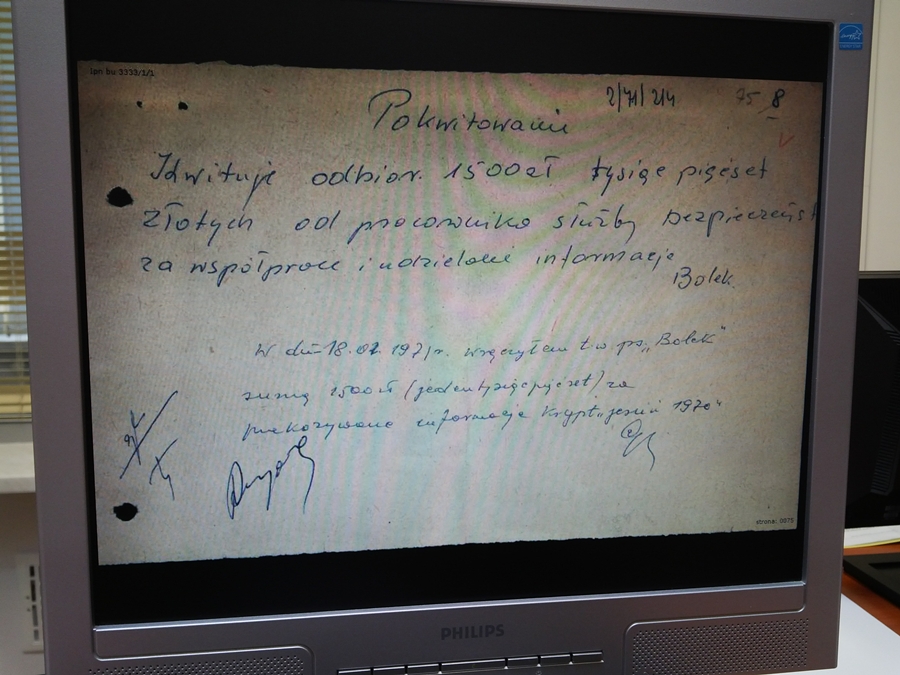 ipn bu 3333/1/1
2/71/214 75 8
Pokwitowanie
Kwituje odbior. 1500zł tysiąc pięćset
złotych od pracownika służby bezpieczeńst
za współprace i udzielanie informacje
Bolek.
W dniu 18.01.1971r. wręczyłem t.w ps „Bolek”
sumę 1500 zł (jedentysiącpięćset) za
przekazywane informacje krypt. „jesień 1970”
strona: 0075
PHILIPS